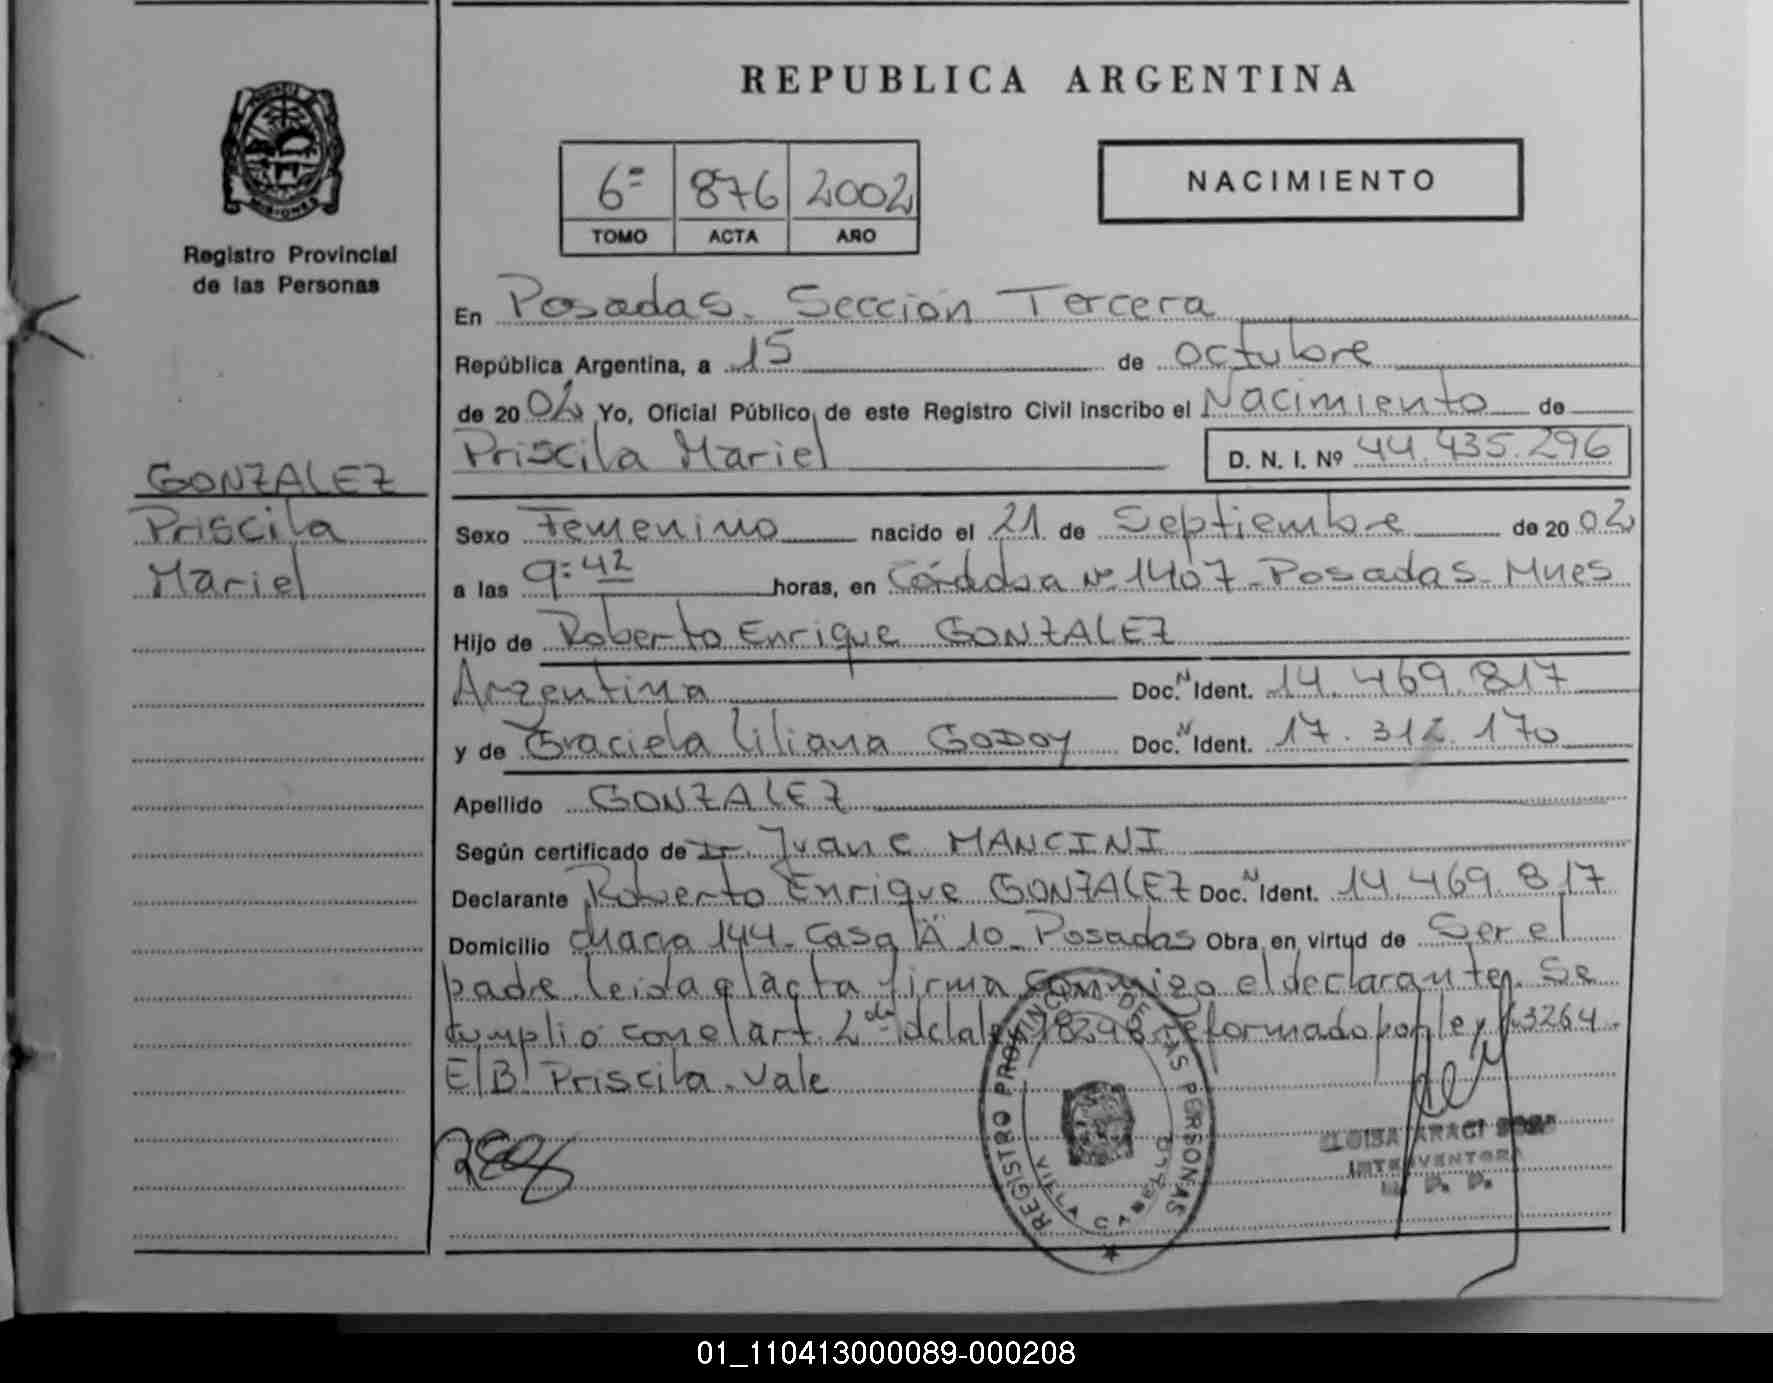 REPUBLICA ARGENTINA
6º 876 2002
TOMO ACTA AÑO
NACIMIENTO
Registro Provincial
de las Personas
MISIONES
GONZALEZ
Priscila
Mariel
En Posadas. Sección Tercera
República Argentina, a 15 de octubre
de 2002 Yo, Oficial Público, de este Registro Civil inscribo el Nacimiento de
Priscila Mariel D. N. I. Nº 44.435.296
Sexo Femenino nacido el 21 de Septiembre de 2002
a las 9:42 horas, en Córdoba Nº 1407-Posadas-Mnes
Hijo de Roberto Enrique GONZALEZ
Argentina Doc. N Ident. 14.469.817
y de Graciela Liliana GODOY Doc. N Ident. 17.312.170
Apellido GONZALEZ
Según certificado de Dr. Juan C. MANCINI
Declarante Roberto Enrique GONZALEZ Doc. N Ident. 14.469.817
Domicilio chacra 144-Casa 10-Posadas Obra en virtud de Ser el
padre leida el acta firma conmigo el declarante. Se
cumplió con el art. 2do de la ley 18248 reformado por ley 23264.
E/B: Priscila. Vale
REGISTRO PROVINCIAL DE LAS PERSONAS
INTERVENTORA
R. P. P.
01_110413000089-000208